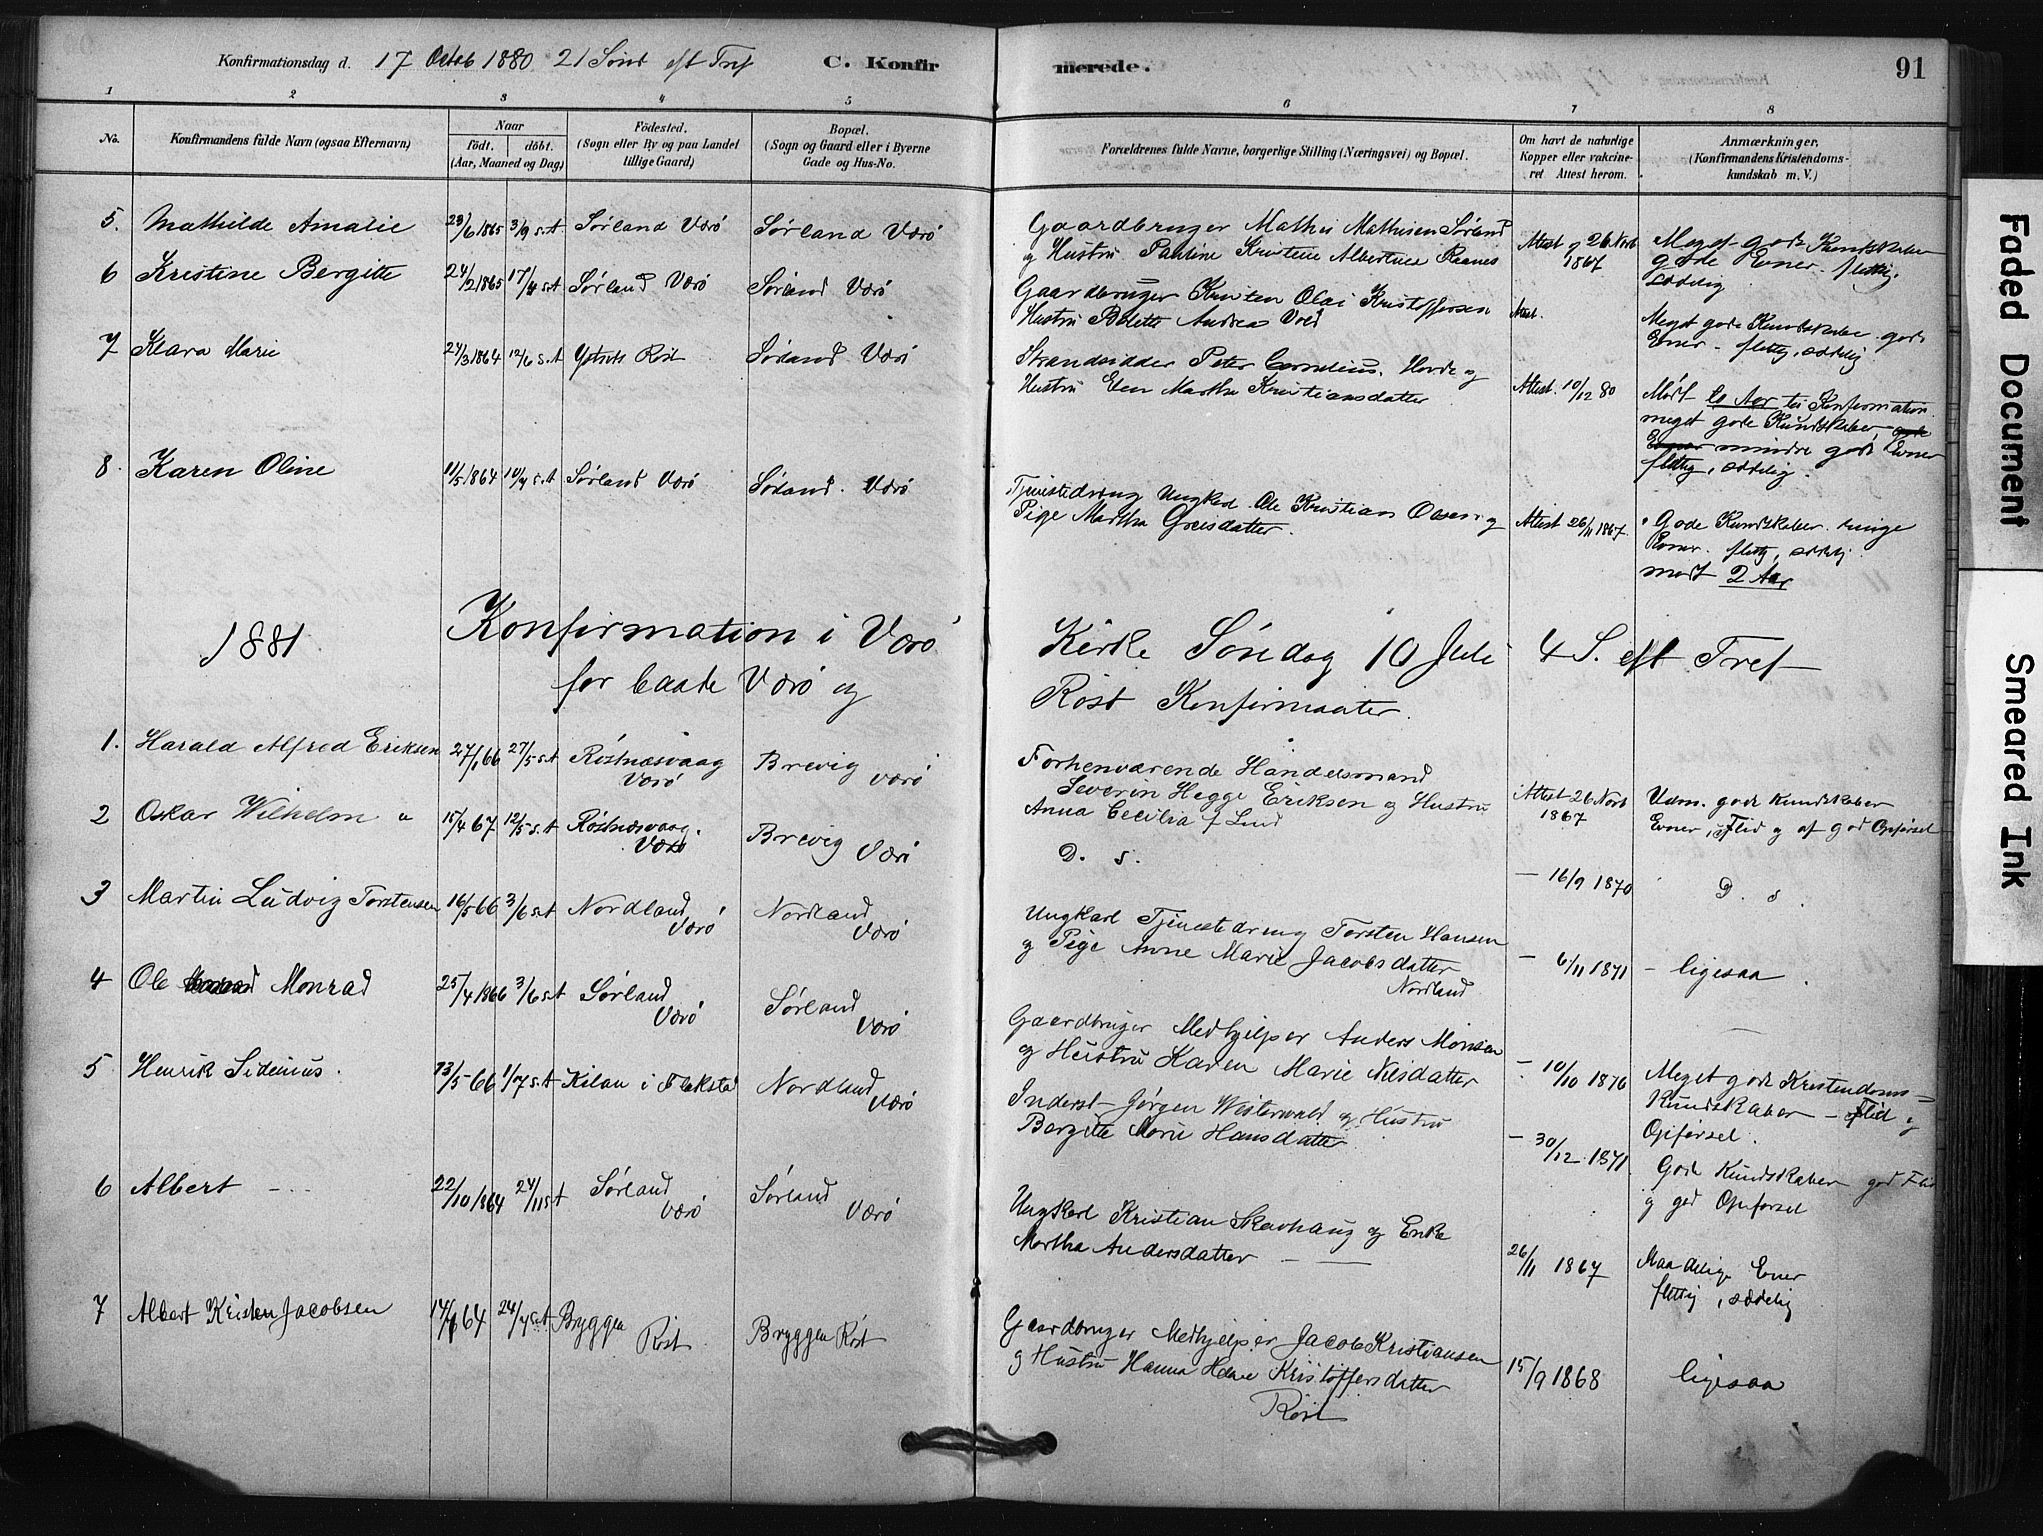 Konfirmationsdag d. 17 Octob 1880 21 Sönd eft Tref C. Konfirmerede. 91
1 2 3 4 5 6 7 8
No. Konfirmandens fulde Navn (ogsaa Efternavn) Naar födt. döbt. (Aar, Maaned og Dag) Födested. (Sogn eller By og paa Landet tillige Gaard) Bopæl. (Sogn og Gaard eller i Byerne Gade og Hus-No. Forældrenes fulde Navne, borgerlige Stilling (Næringsvei) og Bopæl. Om havt de naturlige Kopper eller vakcineret Attest herom. Anmærkninger, (Konfirmandens Kristendomskundskab m. V.)
5. Mathilde Amalie 23/6 1865 3/9 s.A Sørland Værö Sørland Værö
Gaardbruger Mathis Mathisen Sørland
og Hustru Pauline Kristine Albertine
Attest 26 Novb 1867
Meget gode Kundskaber gode Evner. flittig, sædelig
6 Kristine Bergitte 24/2 1865 17/4 s.A Sørland Værö Sørland Værö
Gaardbruger Kristen Olai Kristoffersen
Hustru Bolette Andrea
Attest.
Meget gode Kundskaber gode Evner - flittig, sædelig
7 Klara Marie 24/3 1864 12/6 s.A Røst Sørland Værö
Strandsidder Peter Cornelius og
Hustru Elen Martha Kristiansdatter
Attest. 10/12 80
Mødt Aar til Konfirmation meget gode Kundskaber mindre gode Evner flittig, sædelig.
8. Karen Oline 11/5 1864 10/7 s.A Sørland Værö Sørland. Værö
Tjenestedreng Ungkarl Ole Kristian Olsen og
Pige Martha Greisdatter.
Attest 26/11 1867.
Gode Kundskaber. ringe Evner. flittig, sædelig
mødt 2 Aar
1881 Konfirmation i Værö Kirke Söndag 10 Juli 4 S. eft Tref
for baade Værö og Röst Konfirmanter.
1. Harald Alfred Eriksen 27/1 66 27/5 s.A Röstnæsvaag Værö Brevig Værö
Forhenværende Handelsmand
Severin Hegge Eriksen og Hustru
Anna Cecilia f Lind
Attest 26 Novb 1867
Udm. gode Kundskaber
Evner, Flid og af god Opførsel
2 Oskar Wilhelm " 15/4 67 12/5 s.A Röstnæsvaag. Værö Brevig Værö
D. s.
- 16/9 1870
D. s.
3 Martin Ludvig Torstensen 16/5 66 3/6 s.A Nordland Værö Nordland Værö
Ungkarl Tjenestedreng Torsten Hansen
og Pige Anne Marie Jacobsdatter
Nordland
- 6/11 1871 - ligesaa.
4 Ole Monrad 25/4 1866 3/6 s.A Sørland Værö Sørland Værö
Gaardbruger Medhjelper Anders Monsen
og Hustru Karen Marie Nilsdatter
- 10/10 1876
Meget gode Kristendoms-
Kundskaber - Flid og
Opførsel.
5 Henrik Sidenius. 13/5 66 1/7 s.A Kilan i Flakstad Nordland Værö
Inderst Jørgen Westerwald og Hustru
Bergitte Marie Hansdatter
- 30/12 1871.
Gode Kundskaber god Flid
og god Opførsel
6 Albert - - - 22/10 1864 24/11 s.A Sørland Værö Sørland Værö
Ungkarl Kristian Skavhaug og Enke
Martha Andersdatter
26/11 1867
Maadelige Evner
flittig, sædelig
7 Albert Kristen Jacobsen 64 24/7 s.A Bryggen Röst. Bryggen Röst
Gaardbruger Medhjelper Jacob Kristiansen
og Hustru Hanna Helene Kristoffersdatter
Röst
15/9 1868
ligesaa
Faded Document
Smeared Ink